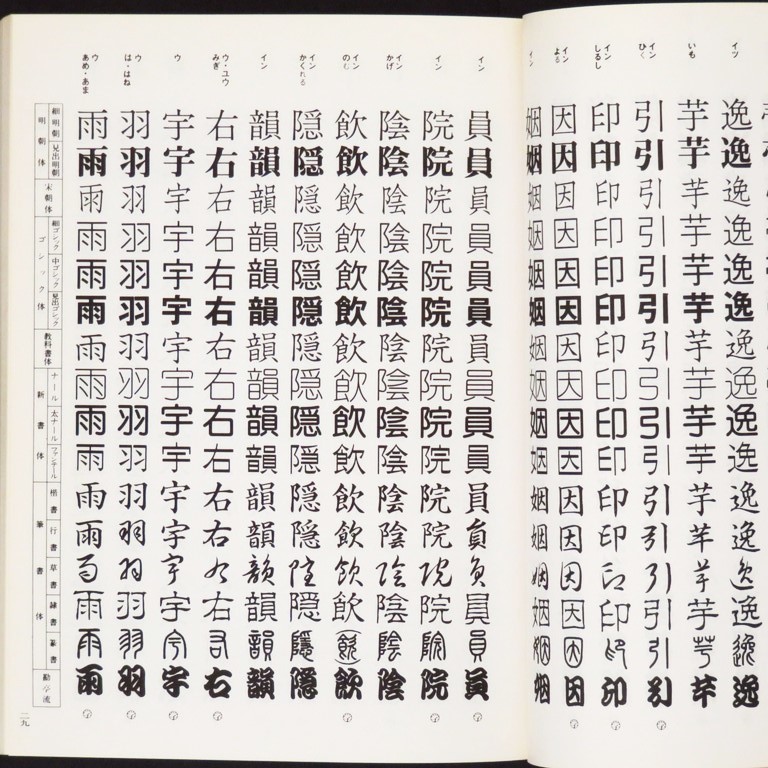 イツ
逸逸逸逸逸逸逸逸逸逸逸逸逸逸逸逸
いも
芋芋芋芋芋芋芋芋芋芋芋芋芋芋芋芋
イン
ひく
引引引引引引引引引引引引引引引引
イン
しるし
印印印印印印印印印印印印印印印印
イン
よる
因因因因因因因因因因因因因因因因
イン
姻姻姻姻姻姻姻姻姻姻姻姻姻姻姻姻
イン
員員員員員員員員員員員員員員員員
イン
院院院院院院院院院院院院院院院院
イン
かげ
陰陰陰陰陰陰陰陰陰陰陰陰陰陰陰陰
イン
のむ
飲飲飲飲飲飲飲飲飲飲飲飲飲飲飲飲
イン
かくれる
隠隠隠隠隠隠隠隠隠隠隠隠隠隠隠隠
イン
韻韻韻韻韻韻韻韻韻韻韻韻韻韻韻韻
ウ・ユウ
みぎ
右右右右右右右右右右右右右右右右
ウ
宇宇宇宇宇宇宇宇宇宇宇宇宇宇宇宇
ウ
は・はね
羽羽羽羽羽羽羽羽羽羽羽羽羽羽羽羽
ウ
あめ・あま
雨雨雨雨雨雨雨雨雨雨雨雨雨雨雨雨
明朝体
細明朝
見出明朝
宋朝体
ゴシック体
細ゴシック
中ゴシック
見出ゴシック
教科書体
新書体
ナール
太ナール
ファンテール
筆書体
楷書
行書
草書
隷書
篆書
勘亭流
二九